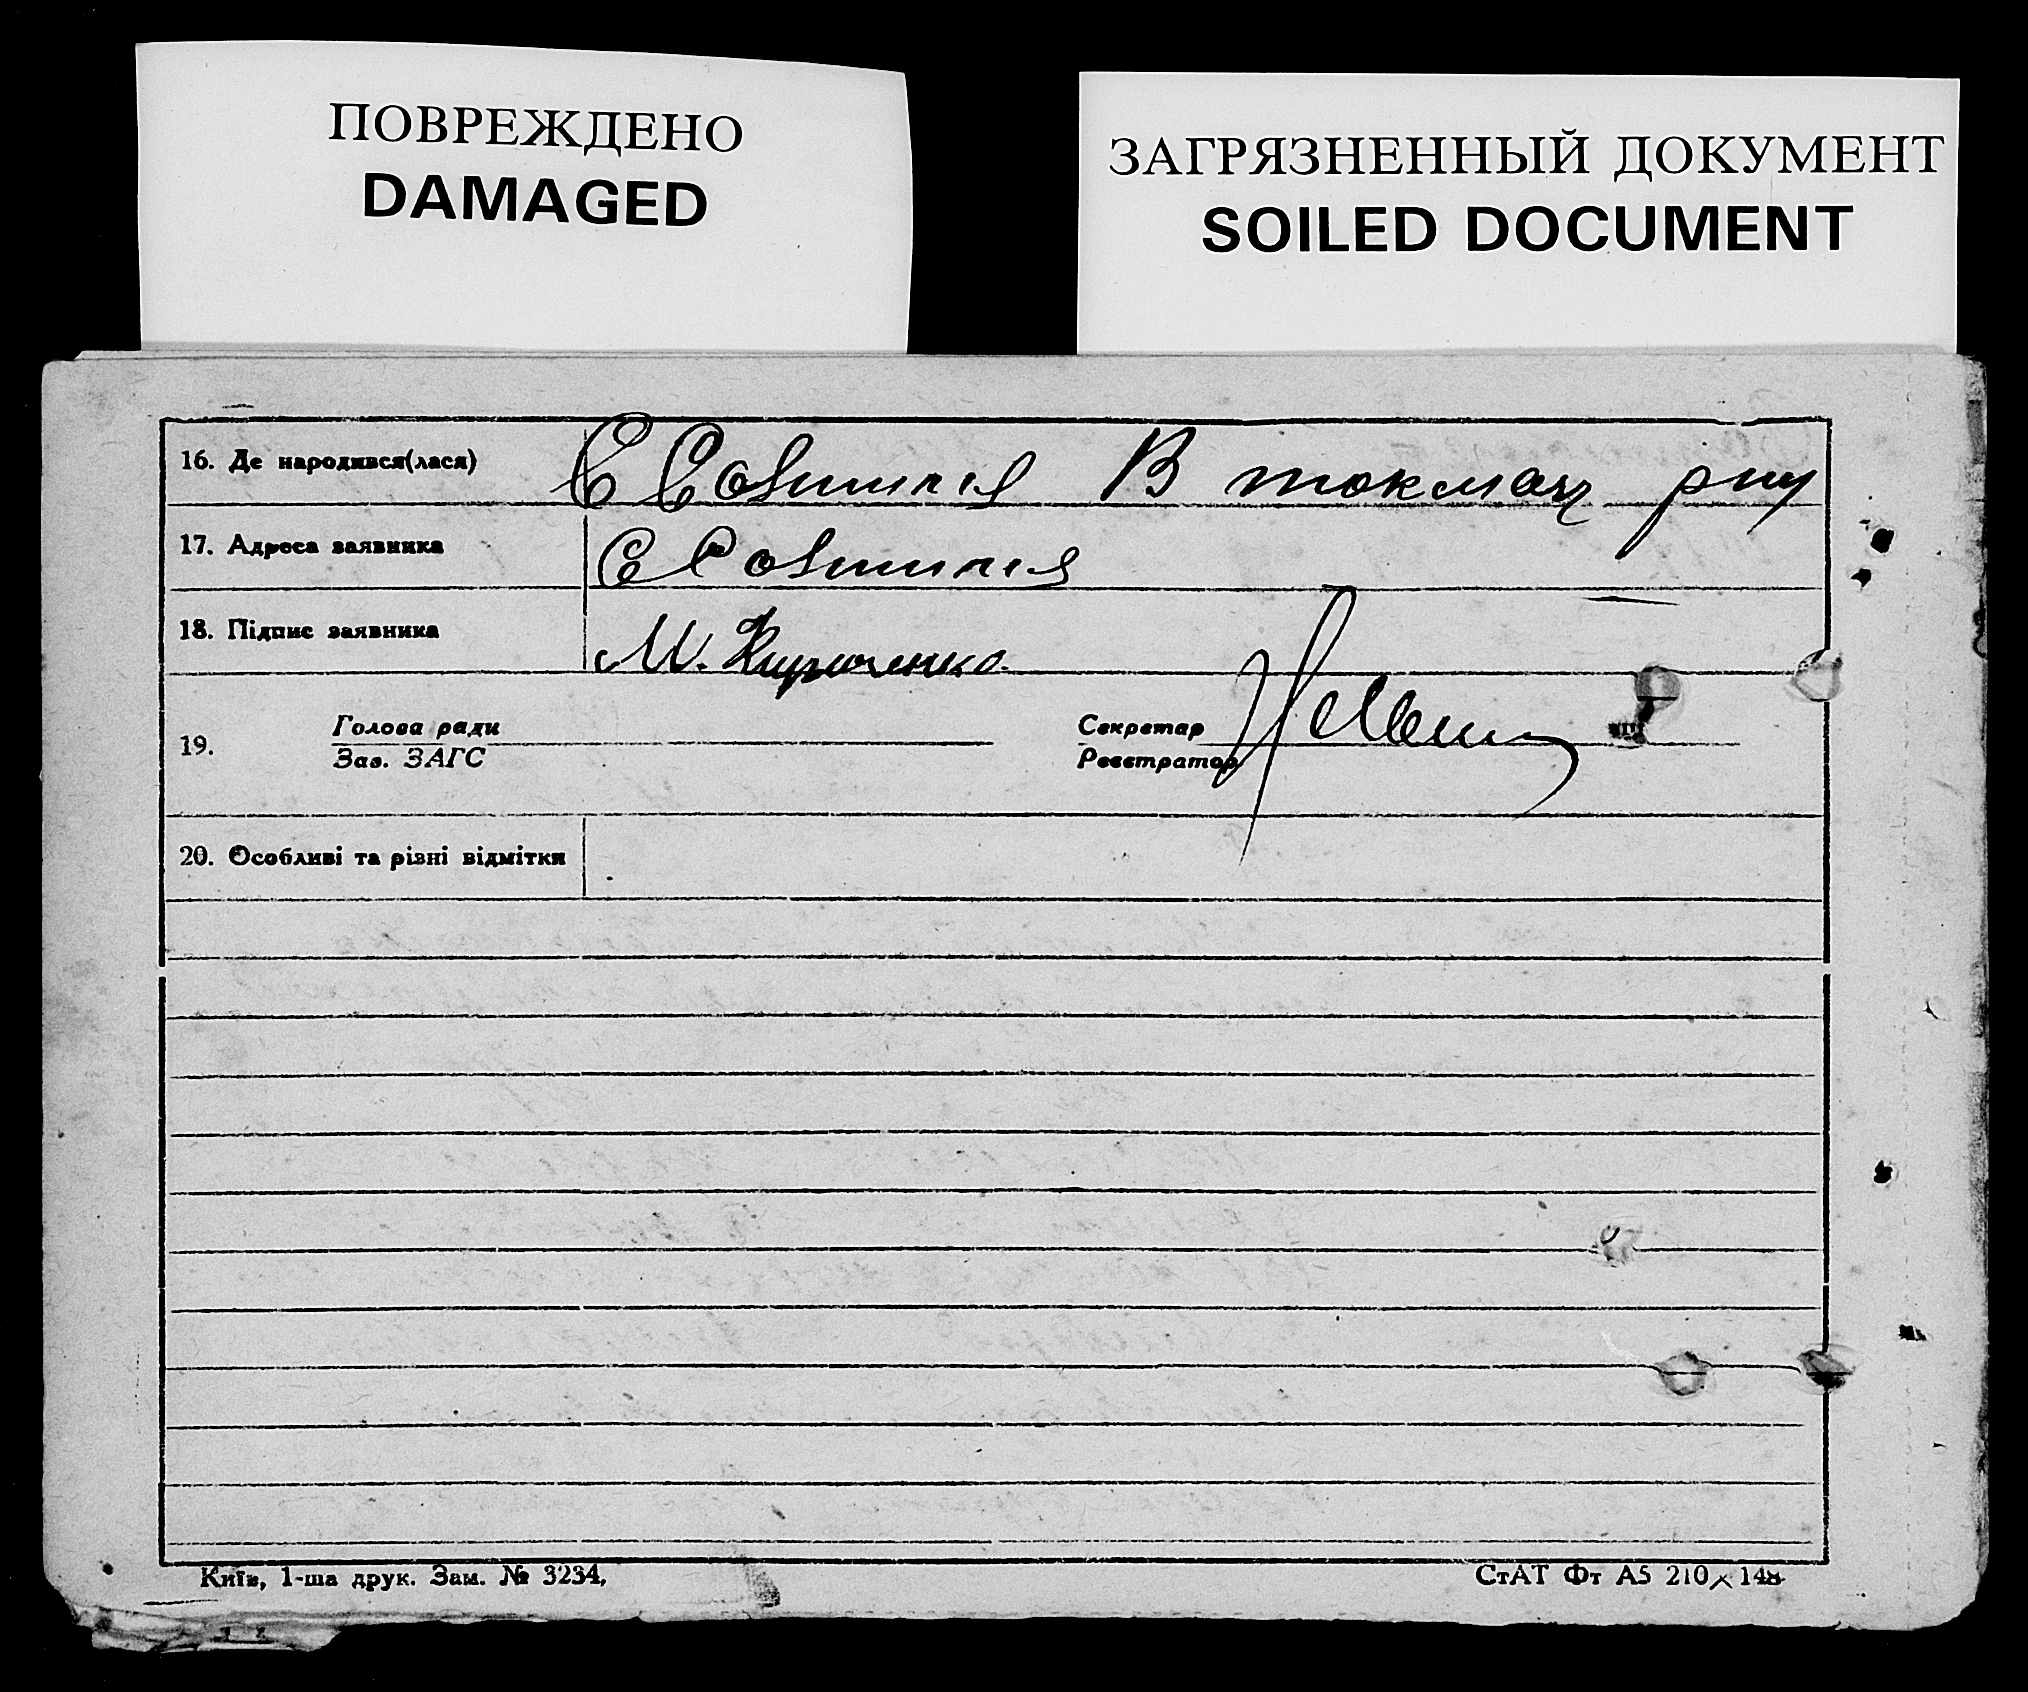 ПОВРЕЖДЕНО
DAMAGED
ЗАГРЯЗНЕННЫЙ ДОКУМЕНТ
SOILED DOCUMENT
16. Де народився(лася) С В токмац рну
17. Адреса заявника С
18. Підпис заявника М. Кириченко
19. Голова ради Секретар
Зав. ЗАГС Реєстратор
20. Особливі та різні відмітки
Київ, 1-ша друк. Зам. № 3234, СтАТ Фт А5 210×148